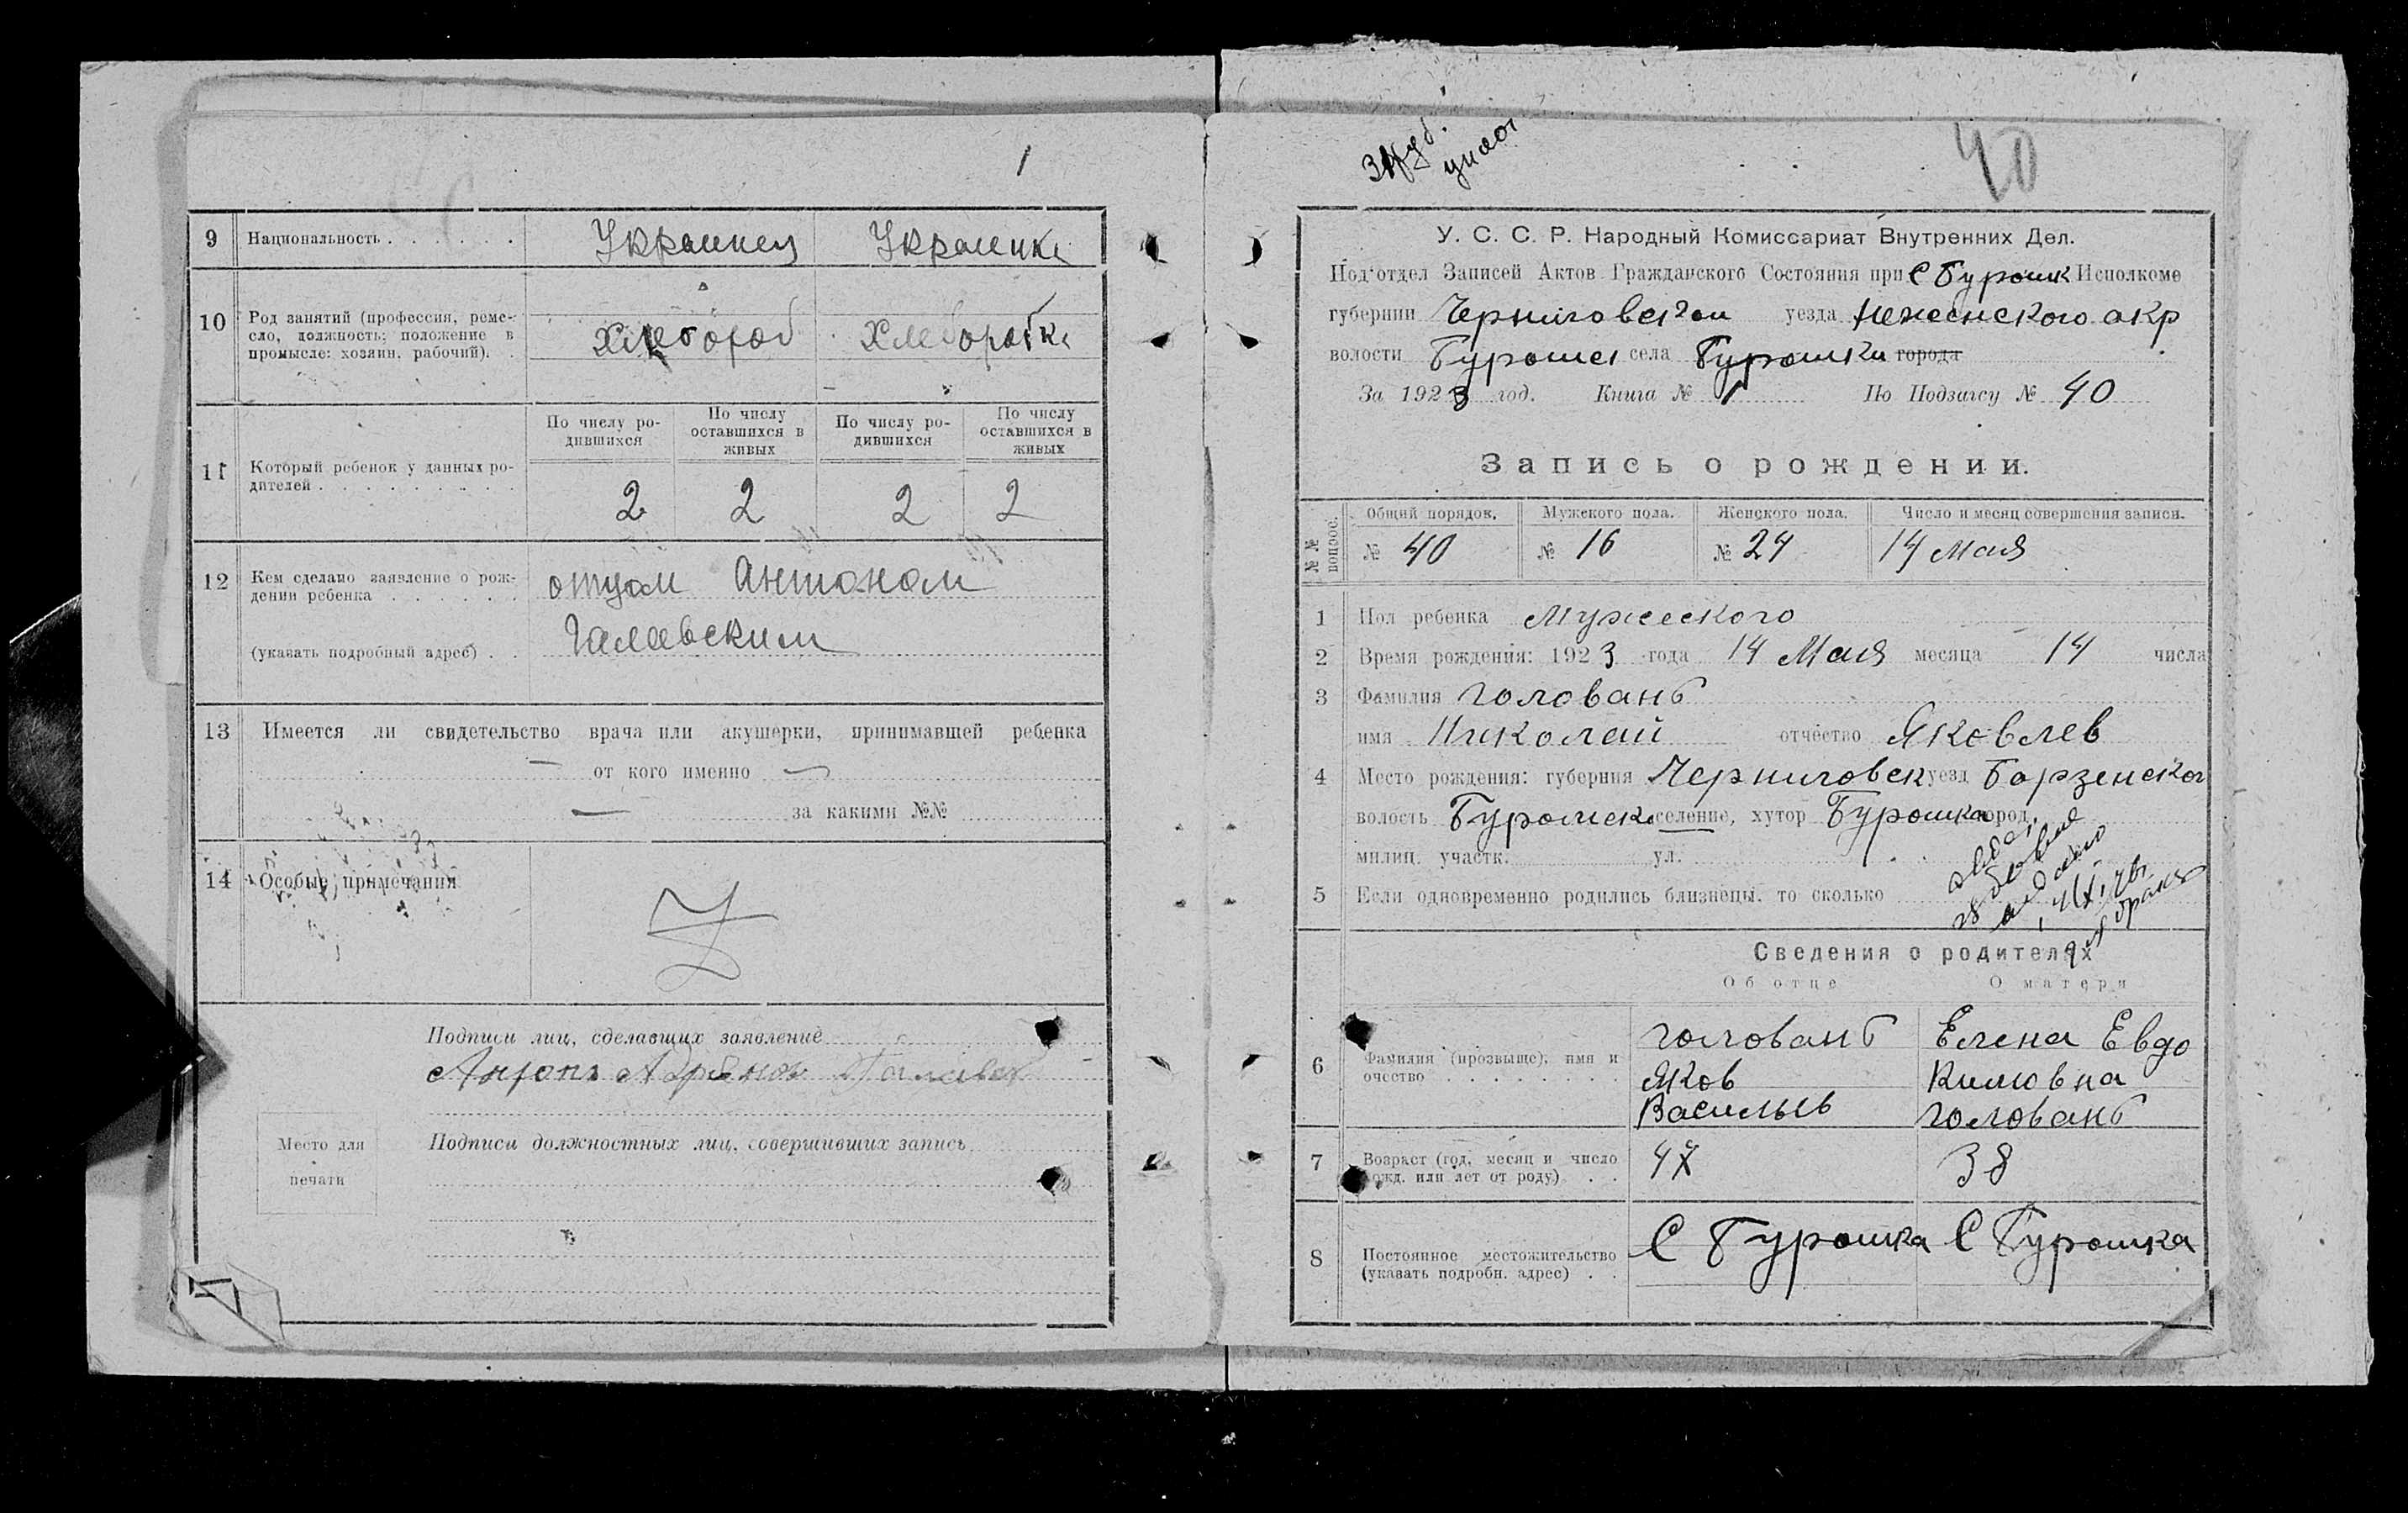 1
9 Национальность . . . . . . Украинец Украинка
10 Род занятий (профессия, реме-
сло, должность; положение в
промысле: хозяин, рабочий). . хлебороб хлеборобка
По числу ро-
дившихся
По числу
оставшихся в
живых
По числу ро-
дившихся
По числу
оставшихся в
живых
11 Который ребенок у данных ро-
дителей . . . . . . . . . 2 2 2 2
12 Кем сделано заявление о рож-
дении ребенка . . . . . . отцом Антоном
(указать подробный адрес) . . Галавским
13 Имеется ли свидетельство врача или акушерки, принимавшей ребенка
— от кого именно —
— за какими №№
14 Особые примечания
Подписи лиц, сделавших заявление
Антон
Место для
печати
Подписи должностных лиц, совершивших запись
40
У. С. С. Р. Народный Комиссариат Внутренних Дел.
Под‘отдел Записей Актов Гражданского Состояния при С Буромк Исполкоме
губернии Черниговской уезда Неженского окр
волости Буромск села Буромки города
За 1923 год. Книга № 1 По Подзагсу № 40
Запись о рождении.
№№ попоряс.
Общий порядок. Мужеского пола. Женского пола. Число и месяц совершения записи.
№ 40 № 16 № 24 14 Мая
1 Пол ребенка Мужеского
2 Время рождения: 1923 года 14 Мая месяца 14 числа
3 Фамилия Головань
имя Николай отчество Яковлев
4 Место рождения: губерния Черниговск уезд Борзенског
волость Буромск селение, хутор Буромка город
милиц. участк. ул.
5 Если одновременно родились близнецы, то сколько
Сведения о родителях
Об отце О матери
6 Фамилия (прозвище), имя и
очество . . . . . . . .
Головань
Яков
Васильев
Елена Евдо
кимовна
Головань
7 Возраст (год, месяц и число
рожд. или лет от роду) . . 47 38
8 Постоянное местожительство
(указать подробн. адрес) . . С Буромка С Буромка